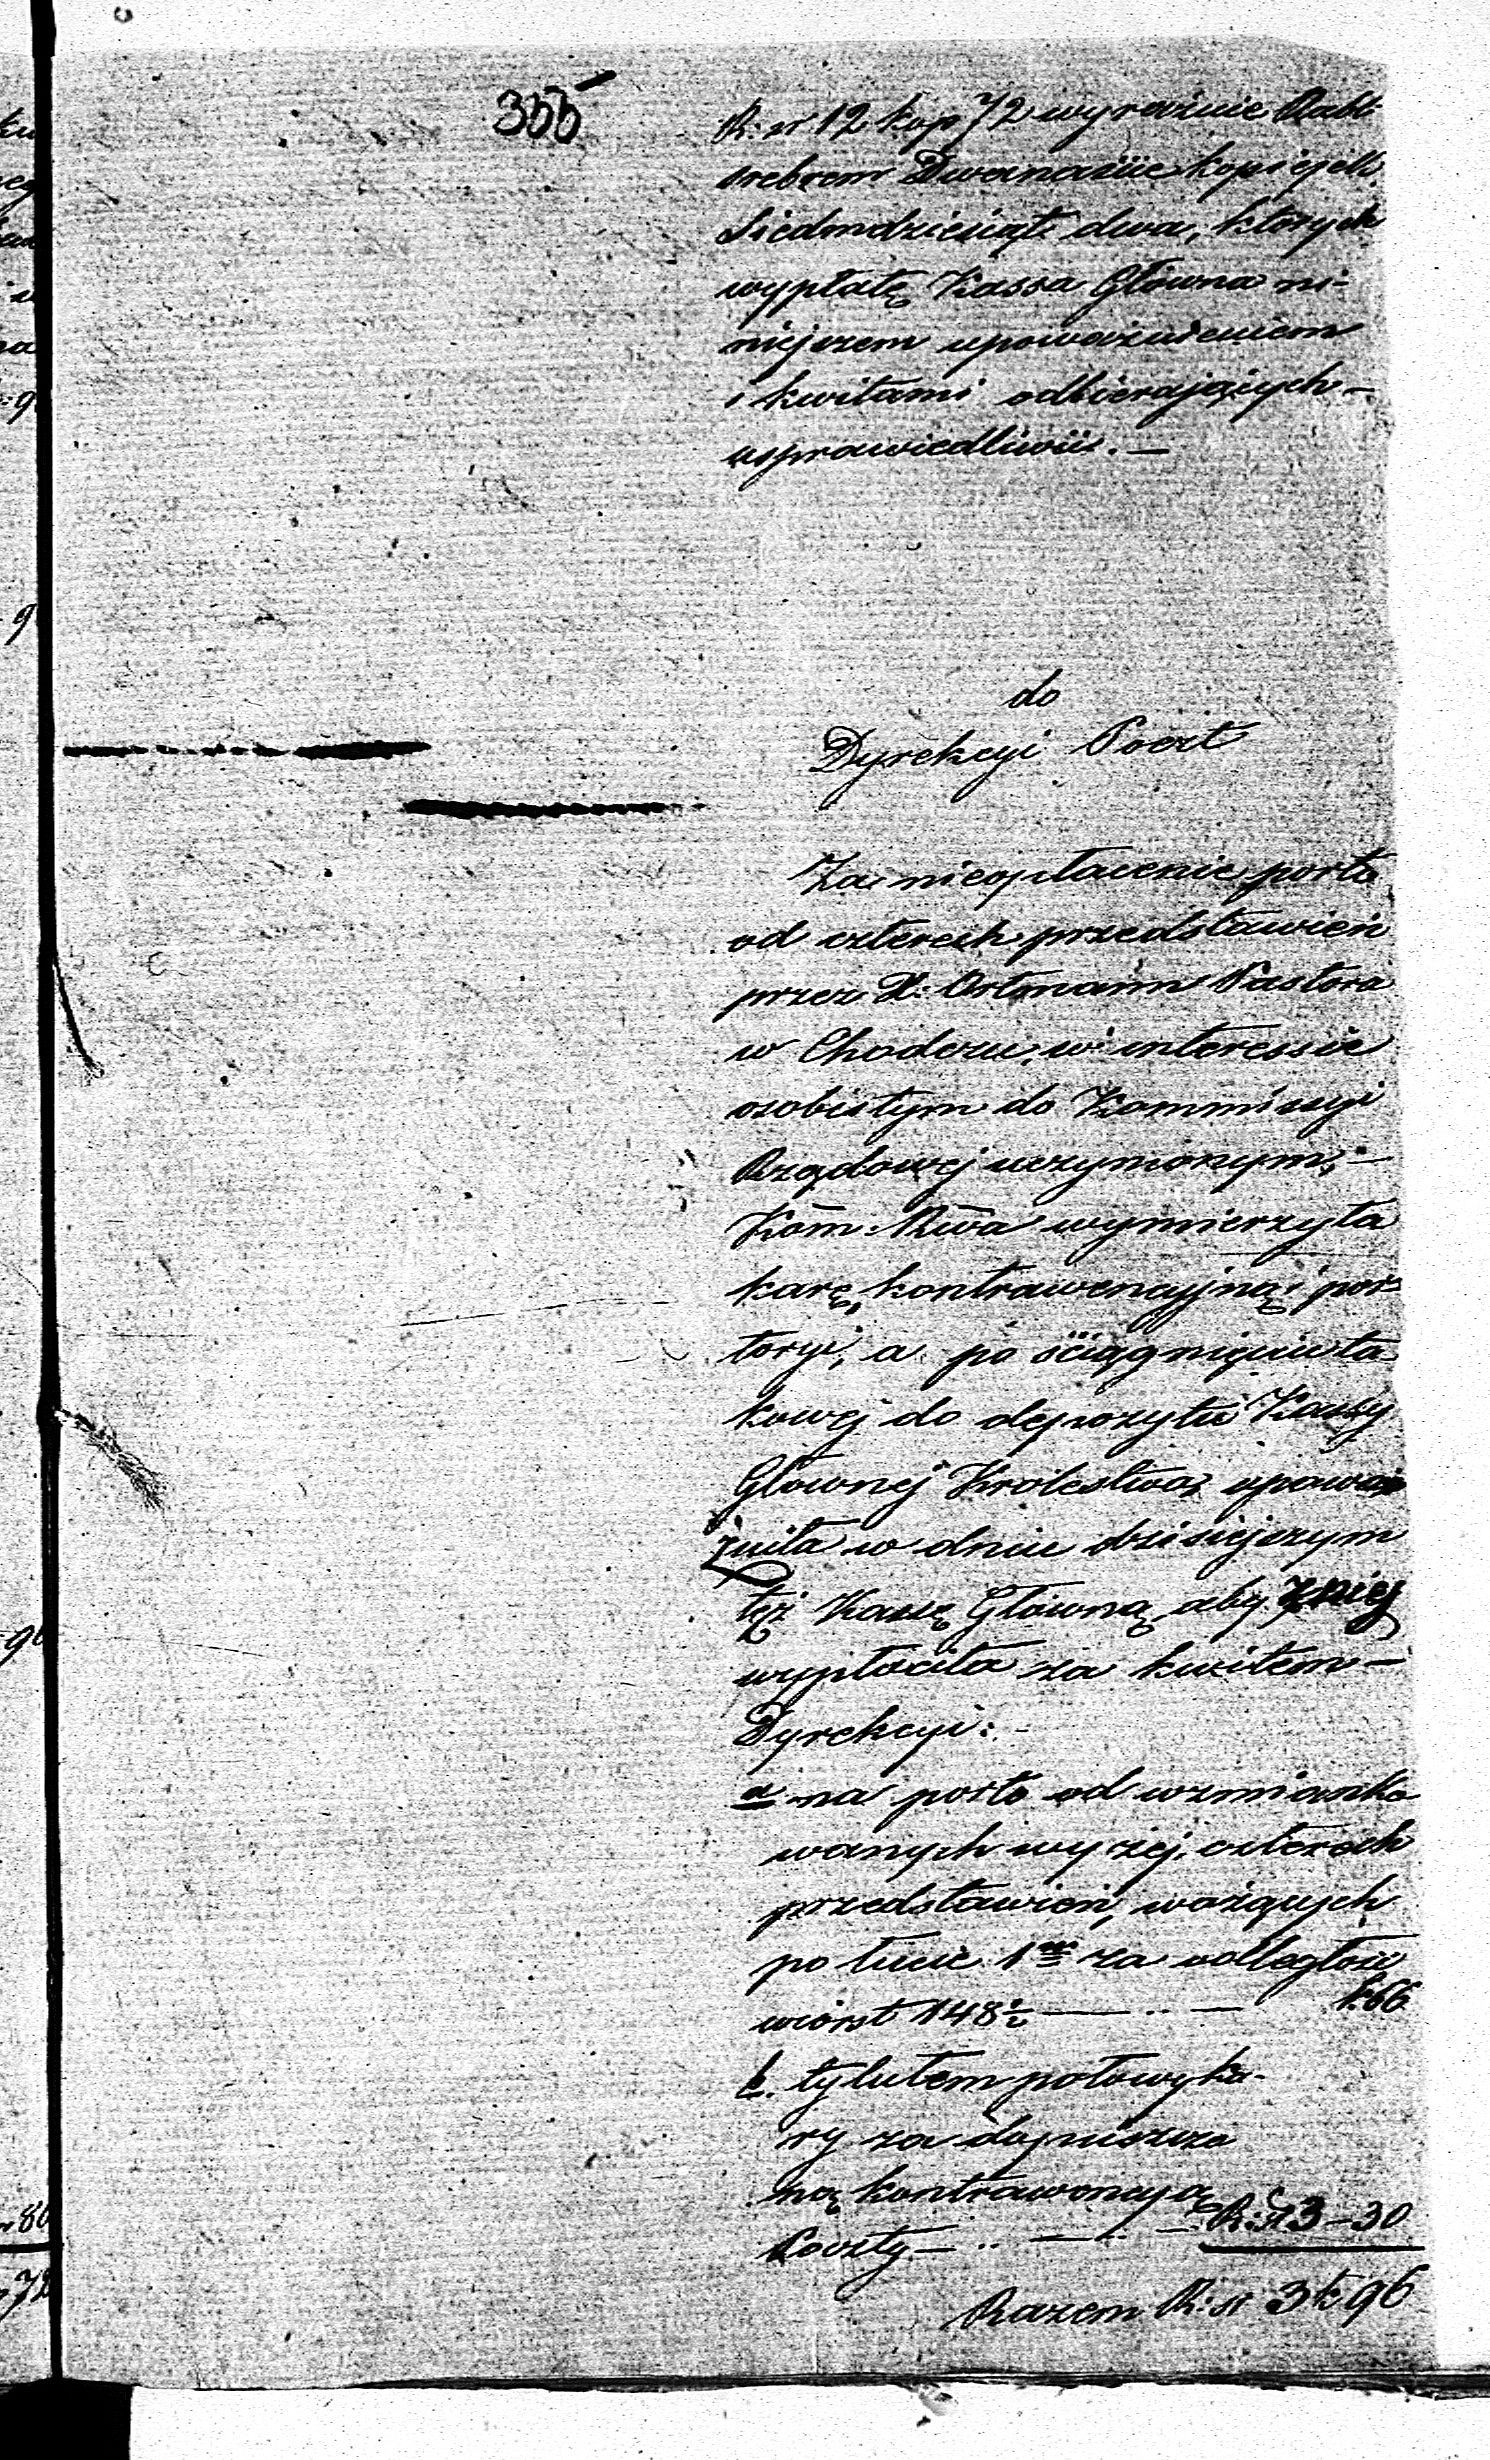 355
R: sr 12 kop 72 wyraźnie Rubl
srebrem Dwanaście kopiejek
Siedmdziesiąt dwa, których
wypłatę Kassa Główna ni-
niejszem upoważnieniem
i kwitami odbierających –
usprawiedliwi. –
do
Dyrekcyi Poczt
Za nieopłacenie porto
od czterech przedstawień
przez X: Ortmann Pastora
w Chodczu, w interessie
osobistym do Kommissyi
Rządowej uczynionym, –
Kom: Rwa wymierzyła
karę kontrawencyjną i por-
toryi, a po ściągnięciu ta-
kowej do depozytu Kassy
Głównej Królestwa, upowa-
żniła w dniu dzisiejszym
tęż Kassę Główną aby z niej
wypłaciła za kwitem –
Dyrekcyi: –
a na porto od wzmianko
wanych wyżej czterech
przedstawień, ważących
po łucie 1ym za odległość
wiorst 148½ — „ — k: 66
b. tytułem połowy ka-
ry za dopuszczo
ną kontrawencyą
Poczty – „ — „ – R: sr 3 – 30
Razem R: sr 3 k 96